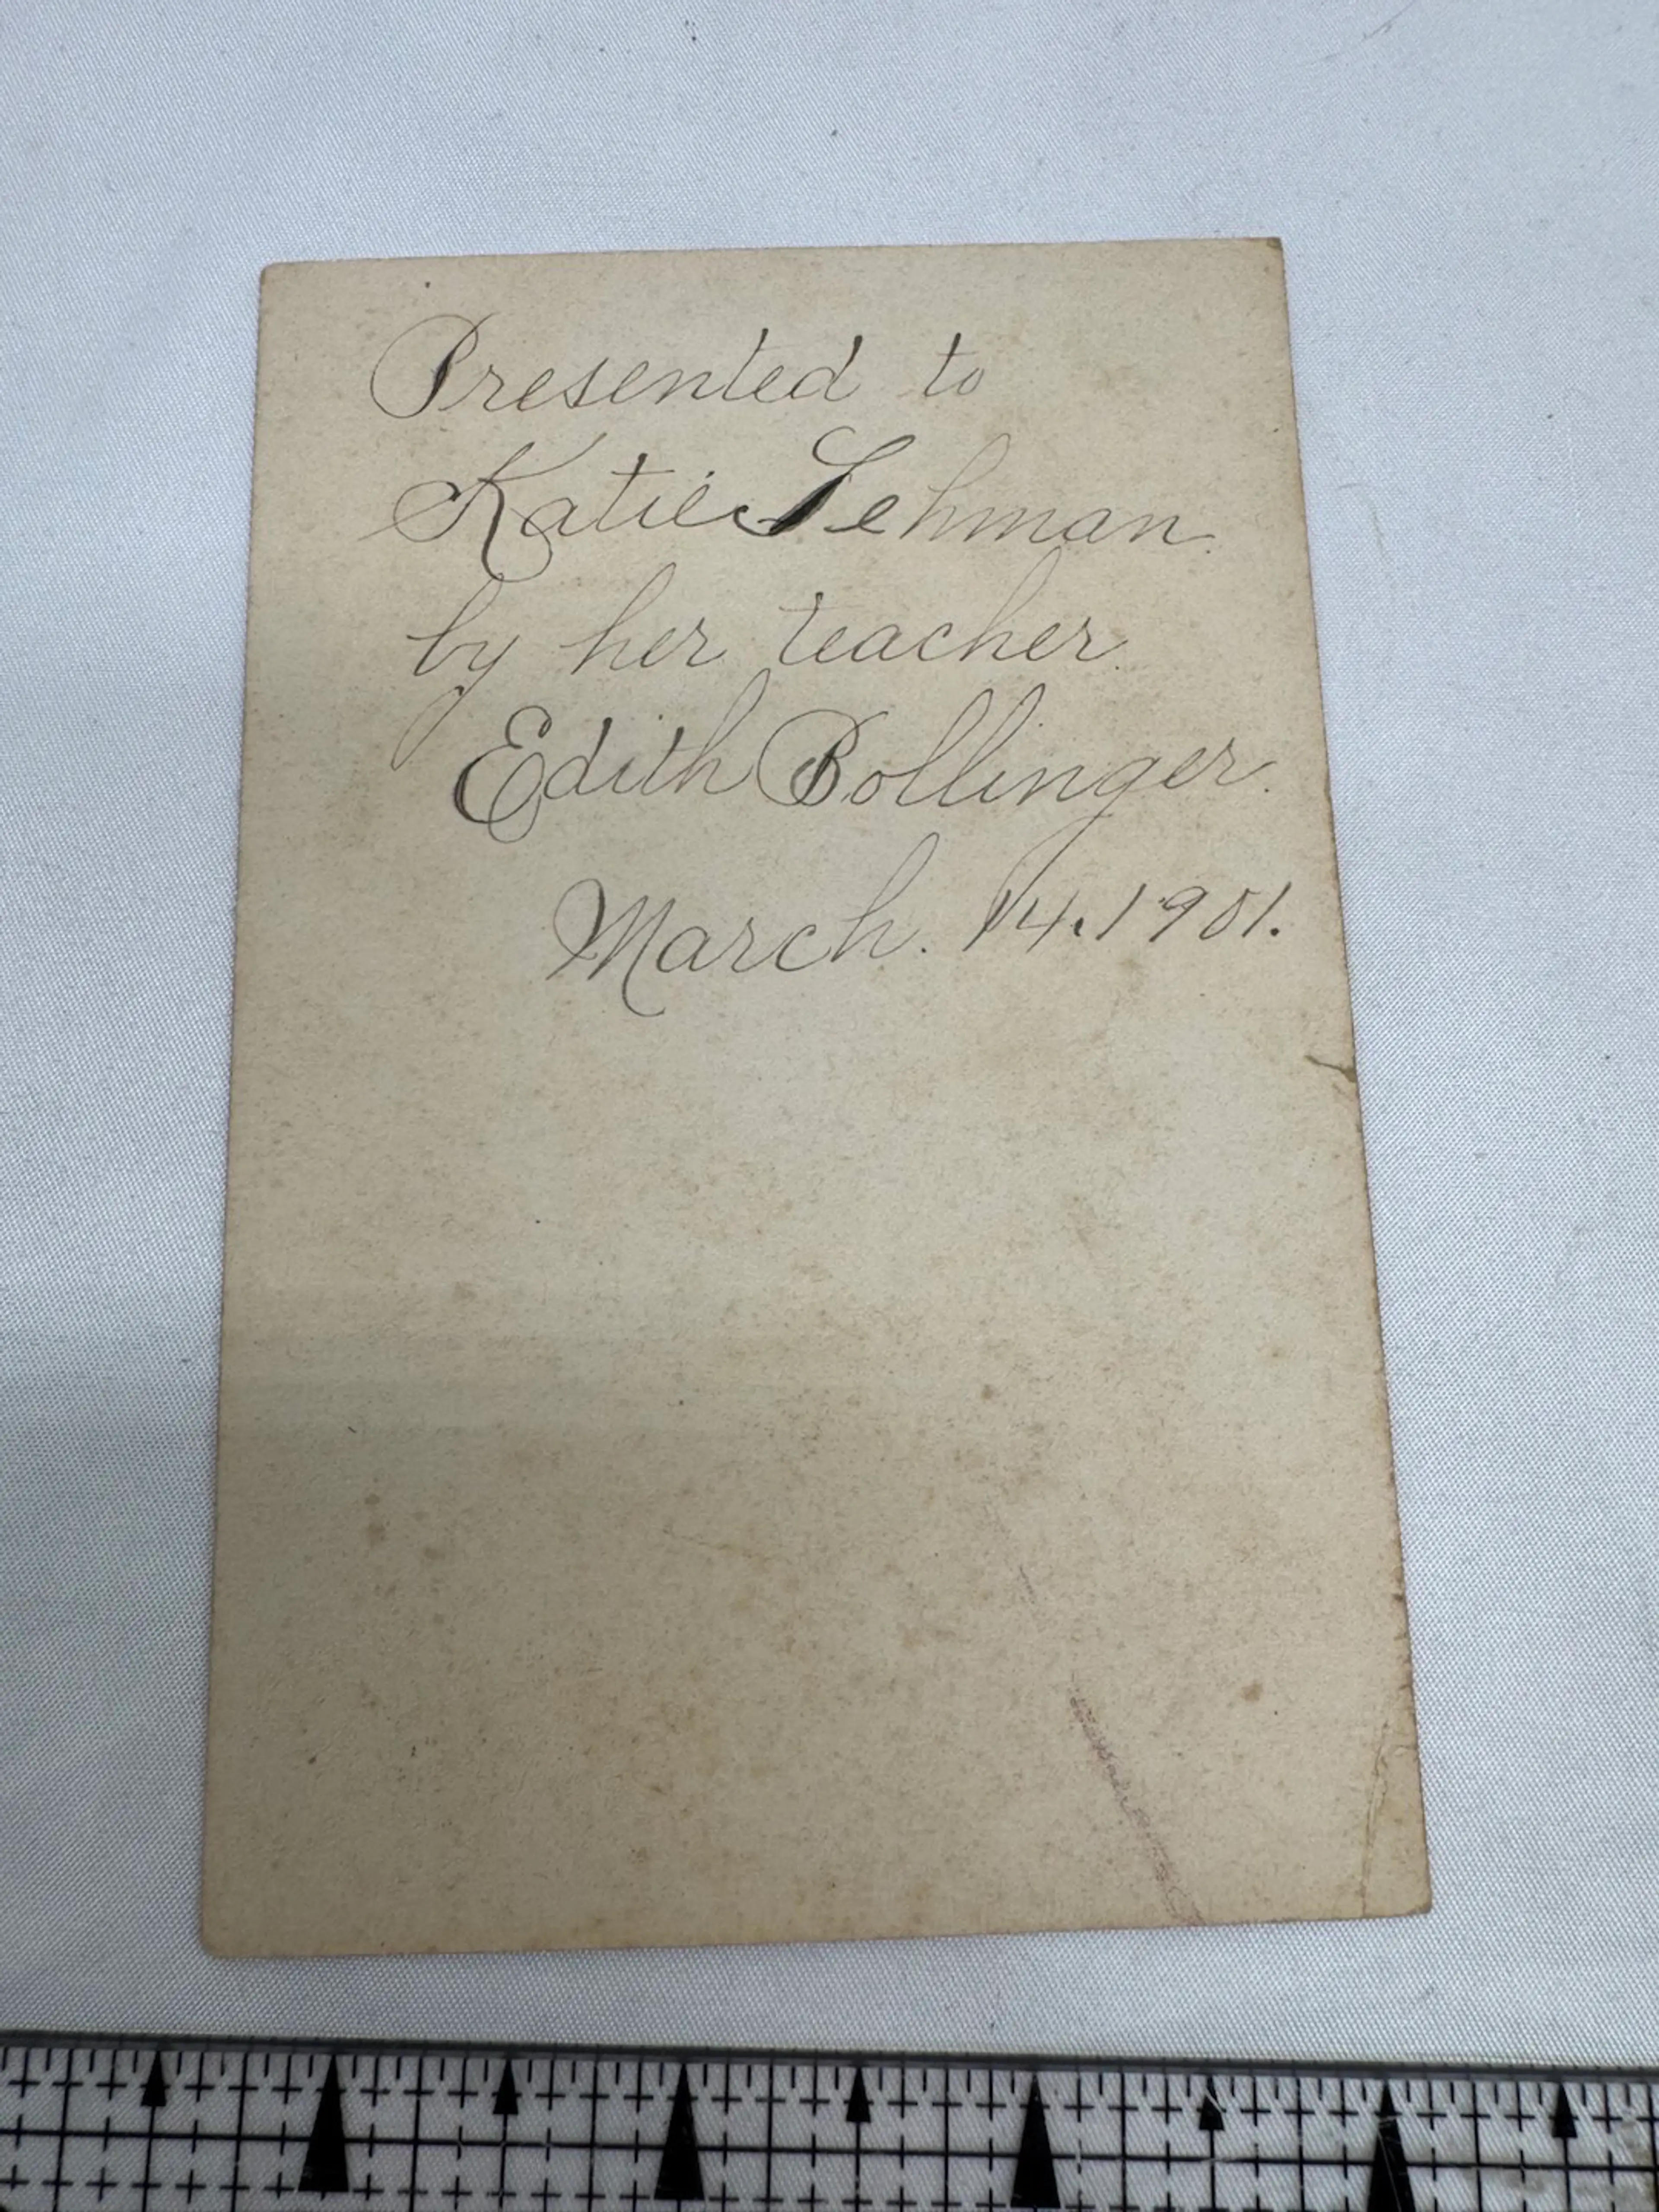 Presented to
Katie Lehman.
by her teacher.
Edith Bollinger.
March. 14. 1901.